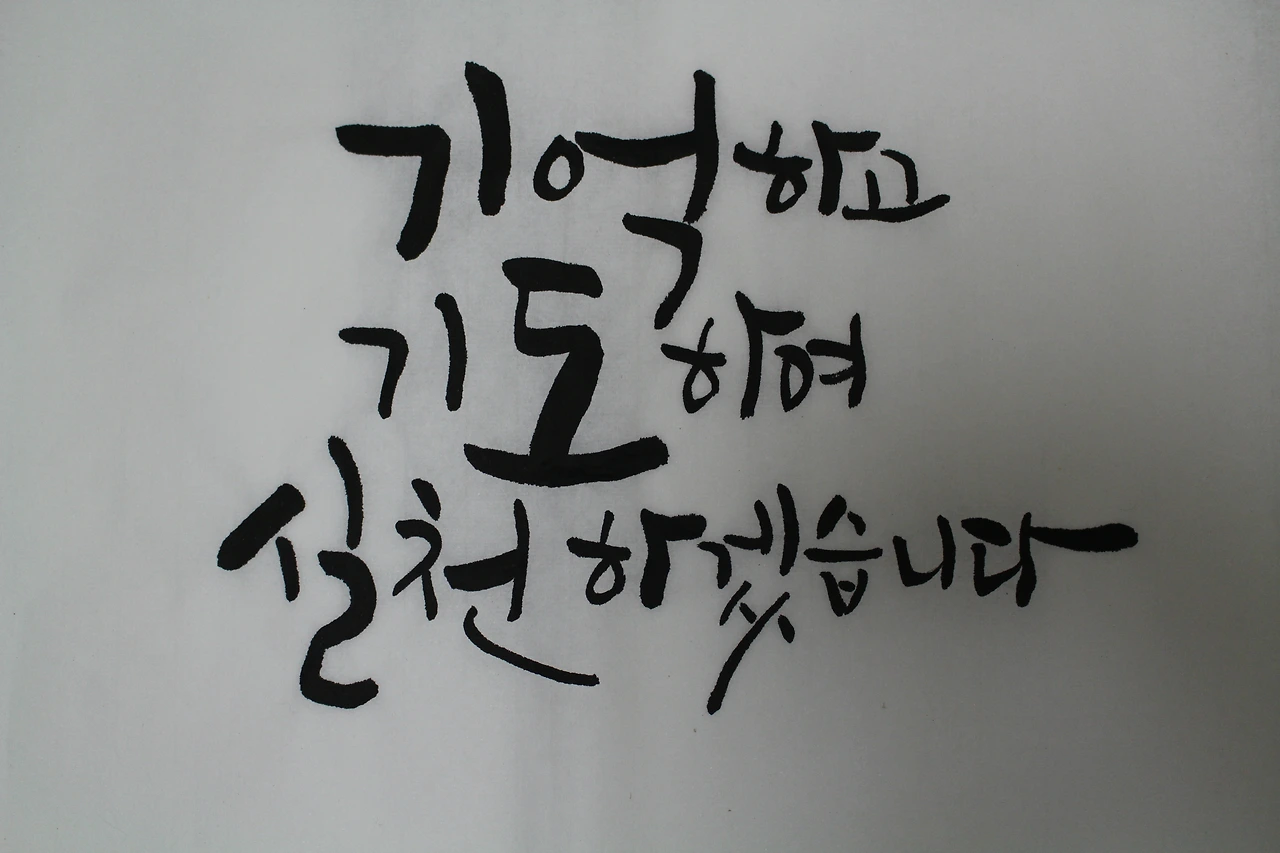 기억하고
기도하여
실천하겠습니다